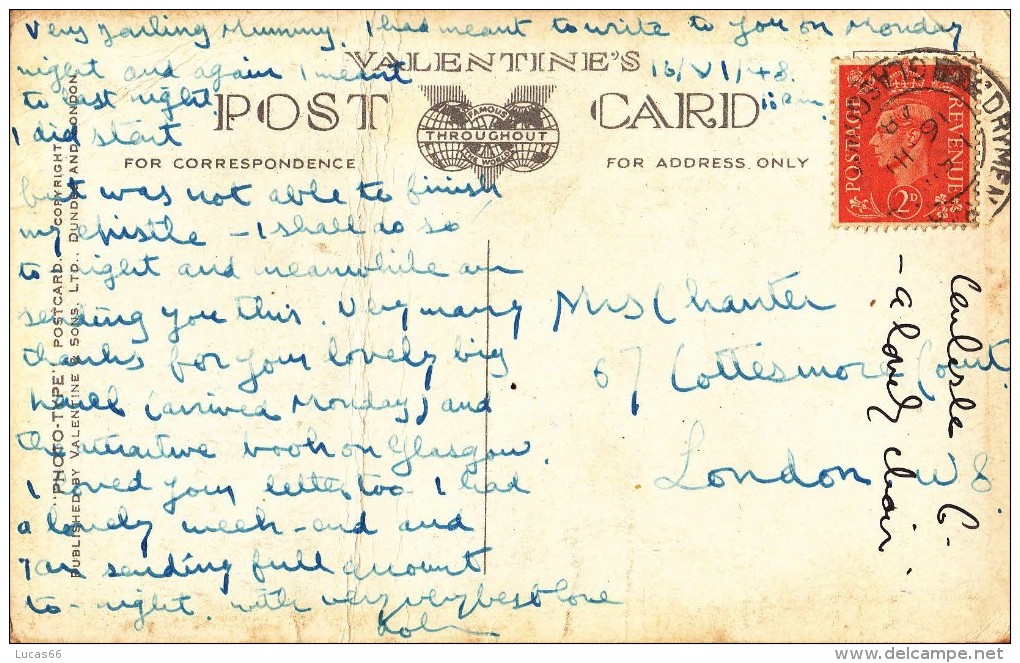 Very Darling Mummy. I had meant to write to you on Monday
night and again I meant
to last night.
I did start
but was not able to finish
my epistle – I shall do so
to night and meanwhile am
sending you this. Very many
thanks for your lovely big
parcel (arrived Monday) and
the attractive book on Glasgow.
I loved your letter too. I had
a lovely week-end and
I am sending full account
to-night. with very very best love
16/VI/48.
VALENTINE'S
POST CARD
FAMOUS
THROUGHOUT
THE WORLD
FOR CORRESPONDENCE
FOR ADDRESS ONLY
Mrs Chanter
67 Cottesmore Court
London W 8
POSTAGE
REVENUE
2D
DRYMEN
GLASGOW
– a lovely choir.
"PHOTO-TYPE" POSTCARD. COPYRIGHT
PUBLISHED BY VALENTINE & SONS, LTD., DUNDEE AND LONDON
Lucas66
delcampe.net